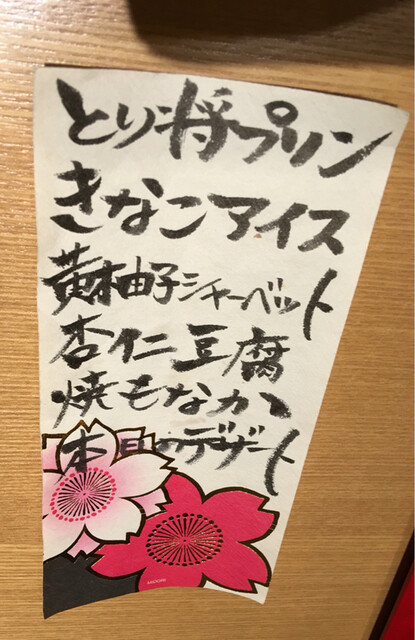 とり将プリン
きなこアイス
黄柚子シャーベット
杏仁豆腐
焼もなか
本日のデザート